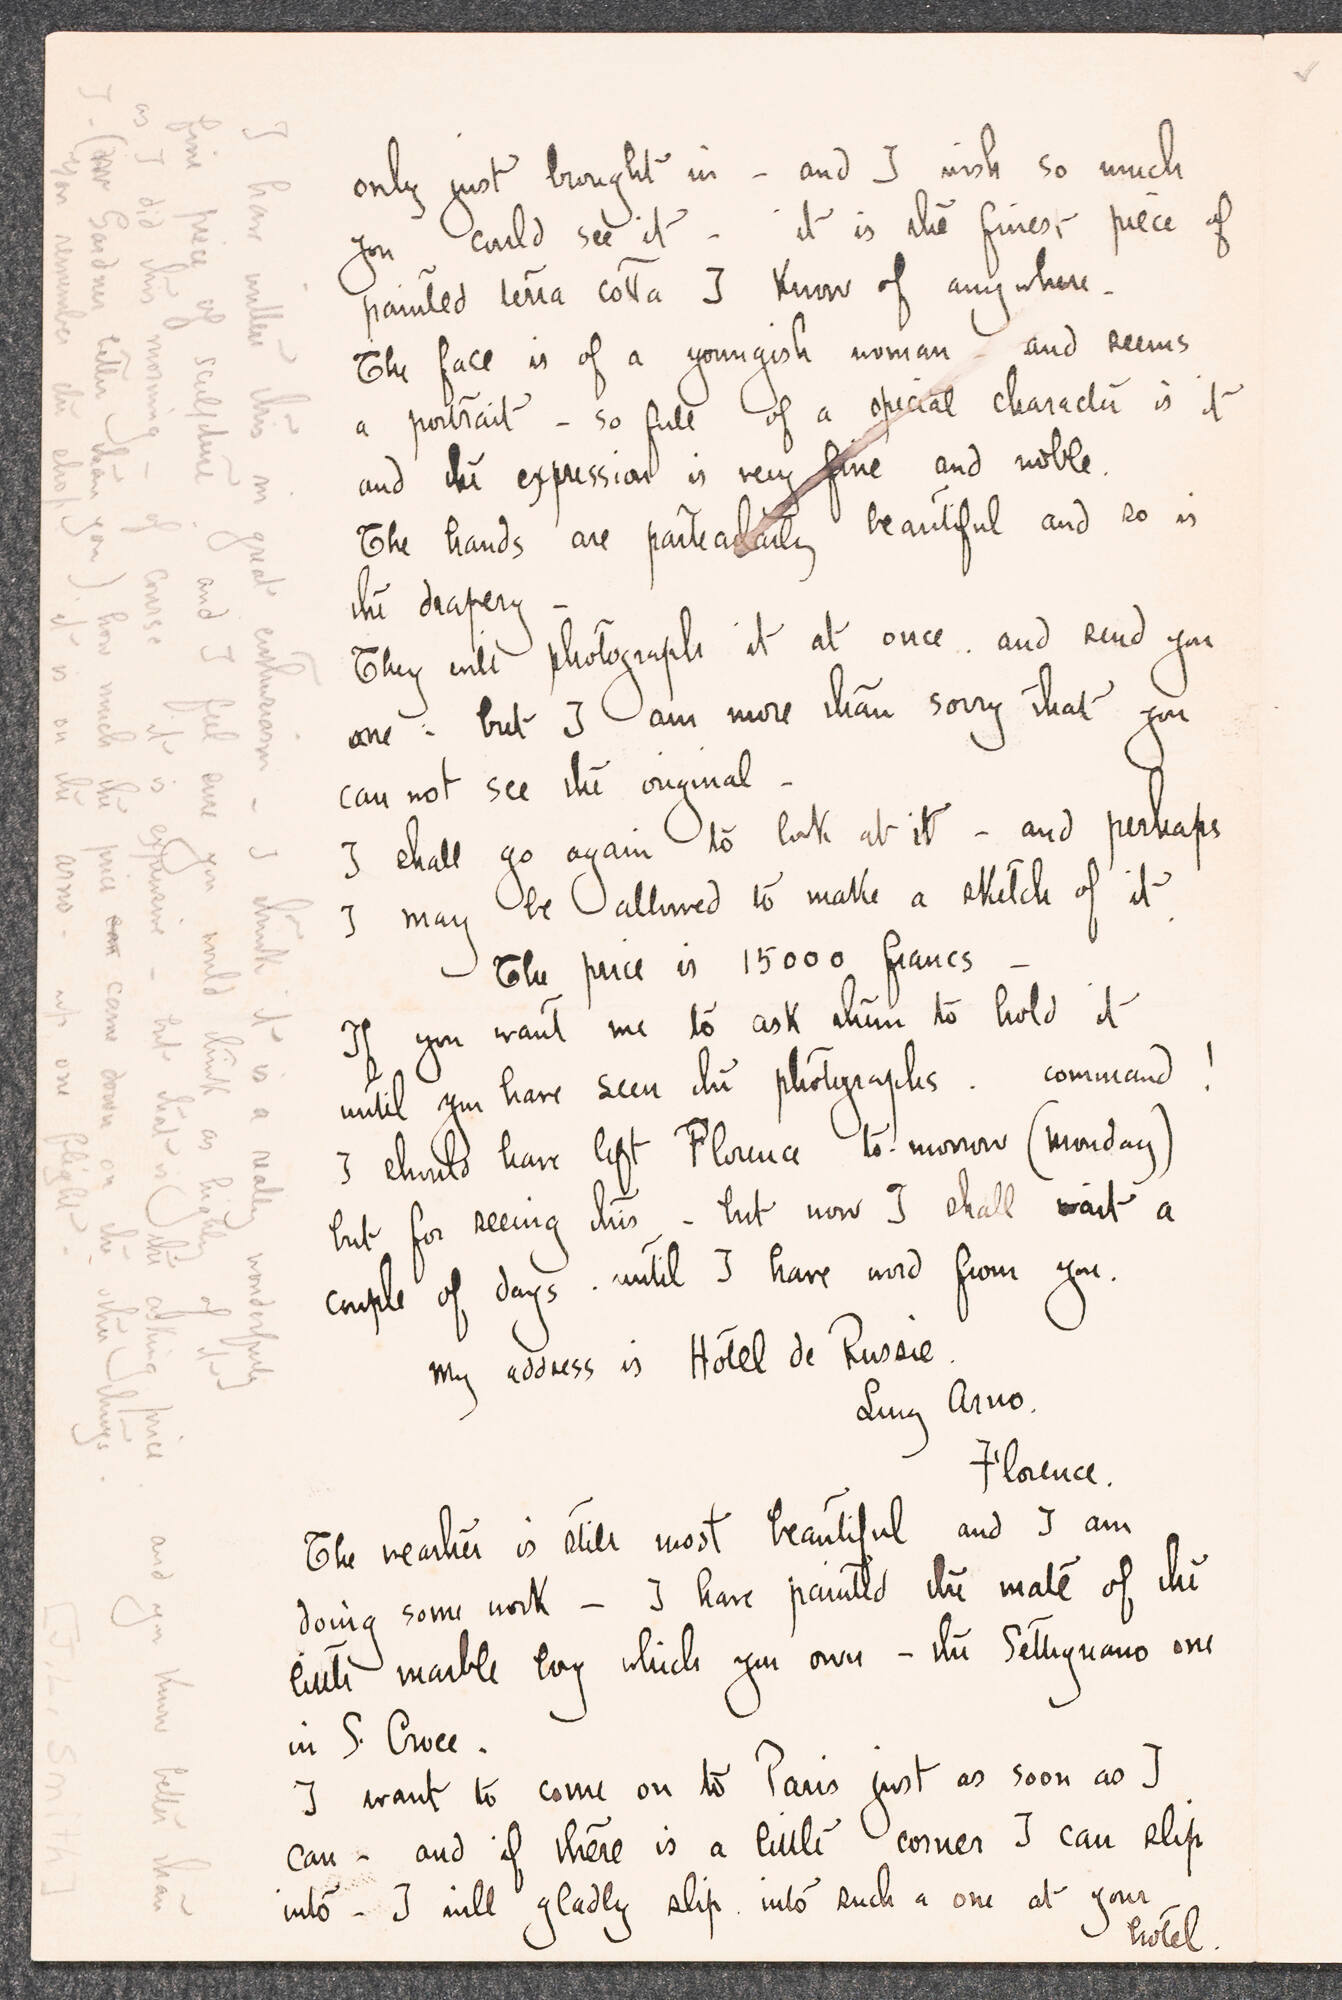 only just brought in - and I wish so much
you could see it - it is the finest piece of
painted terra cotta I know of anywhere -
The face is of a youngish woman - and seems
a portrait - so full of a special character is it
and the expression is very fine and noble.
The hands are particularly beautiful and so is
the drapery -
They will photograph it at once. and send you
one - but I am more than sorry that you
can not see the original -
I shall go again to look at it - and perhaps
I may be allowed to make a sketch of it.
The price is 15000 francs -
If you want me to ask them to hold it
until you have seen the photographs. command!
I should have left Florence to-morrow (Monday)
but for seeing this - but now I shall wait a
couple of days. until I have word from you.
My address is Hôtel de Russie.
Lung Arno.
Florence.
The weather is still most beautiful and I am
doing some work - I have painted the mate of the
little marble boy which you own - the Settignano one
in S. Croce.
I want to come on to Paris just as soon as I
can - and if there is a little corner I can slip
into - I will gladly slip into such a one at your
hotel.
I have written this in great enthusiasm - I think it is a really wonderfully
fine piece of sculpture and I feel sure you would think as highly of it
as I did this morning - of course it is expensive - but that is the asking price. and you know better than
I - (Mr Gardner better than you) how much the price can come down on the other things.
You remember the shop, it is on the Arno - up one flight -
[J. L. Smith]